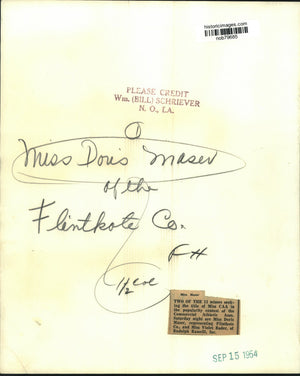 historicimages.com
PLEASE CREDIT
Wm. (BILL) SCHRIEVER
N. O., LA.
Miss Doris Maser
of the
Flintkote Co.
F H
1 1/2 col
Miss Maser
TWO OF THE 12 misses seeking
the title of Miss CAA in
the popularity contest of the
Commercial Athletic Assn.
Saturday night are Miss Doris
Maser, representing Flintkote
Co., and Miss Violet Rader, of
Rudolph Ramelli, Inc.
SEP 15 1954